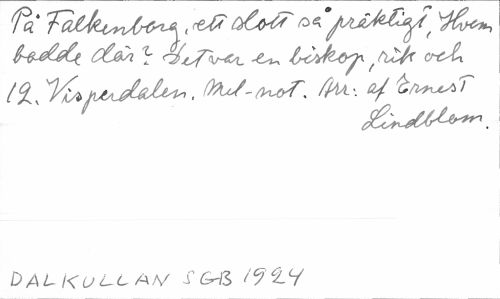 På Falkenborg, ett slott så präktigt, Hvem
bodde där? Det var en biskop, rik och
12. Visperdalen. Mel-not. Arr: af Ernest
Lindblom.
DALKULLAN SGB 1924